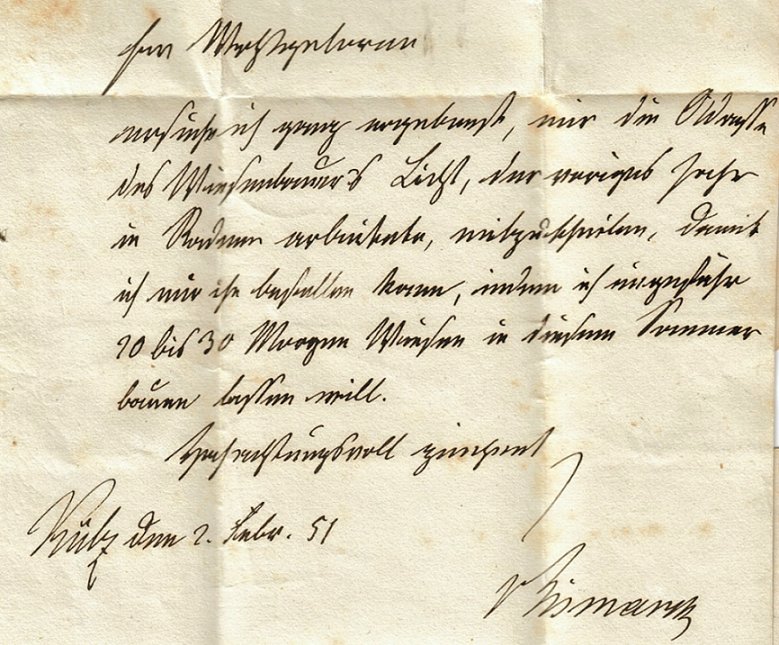 Euer Wohlgeboren
ersuche ich ganz ergebenst, mir die Adresse
des Wiesenbauer's Licht, der voriges Jahr
in Radum arbeitete, mitzutheilen, damit
ich mir ihn bestellen kann, indem ich ungefähr
20 bis 30 Morgen Wiesen in diesem Sommer
bauen lassen will.
Hochachtungsvoll zeichnet
Külz den 2. Febr. 51
v Bismarck